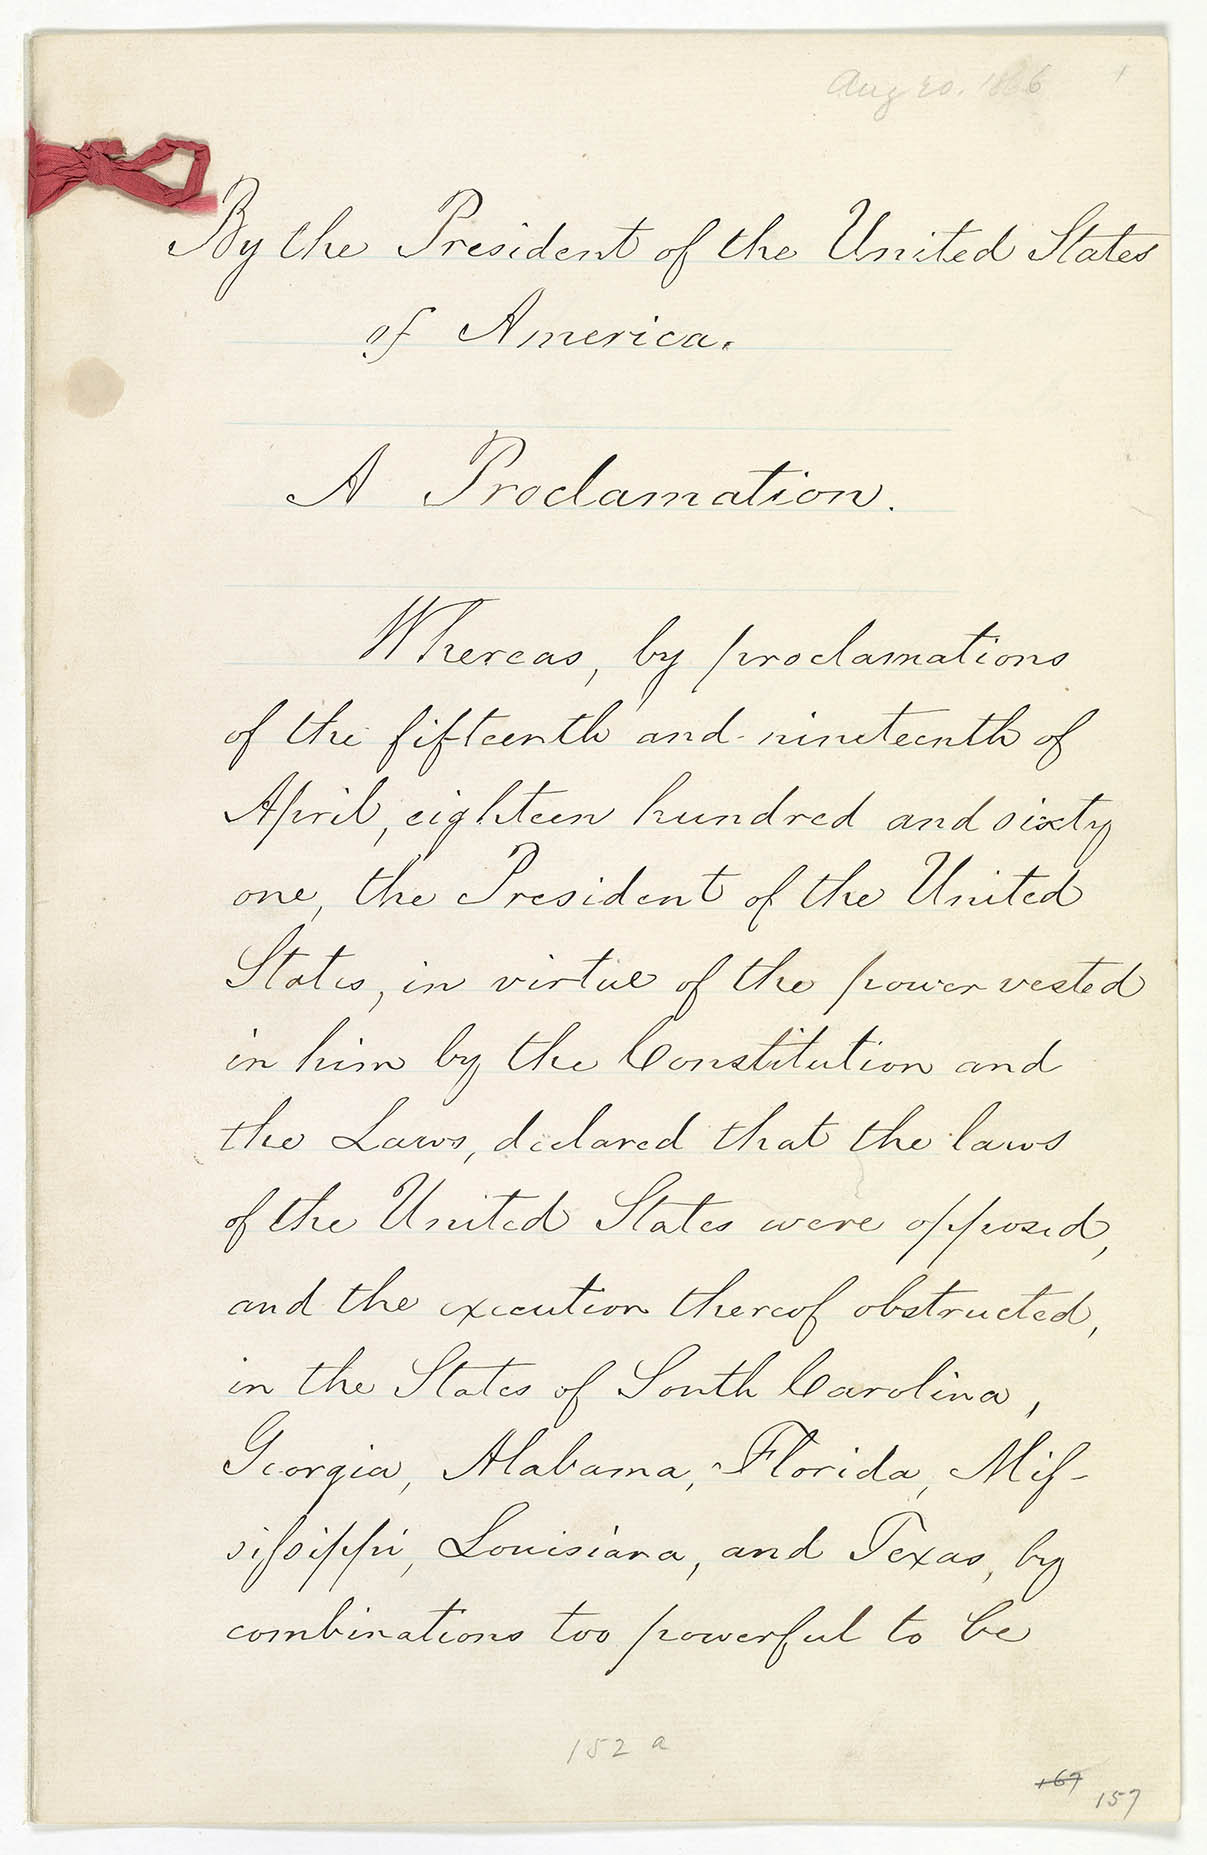 Aug 20. 1866
1
By the President of the United States
of America.
A Proclamation.
Whereas, by proclamations
of the fifteenth and nineteenth of
April, eighteen hundred and sixty
one, the President of the United
States, in virtue of the power vested
in him by the Constitution and
the Laws, declared that the laws
of the United States were opposed,
and the execution thereof obstructed,
in the States of South Carolina,
Georgia, Alabama, Florida, Mis-
sissippi, Louisiana, and Texas, by
combinations too powerful to be
152 a
167
157